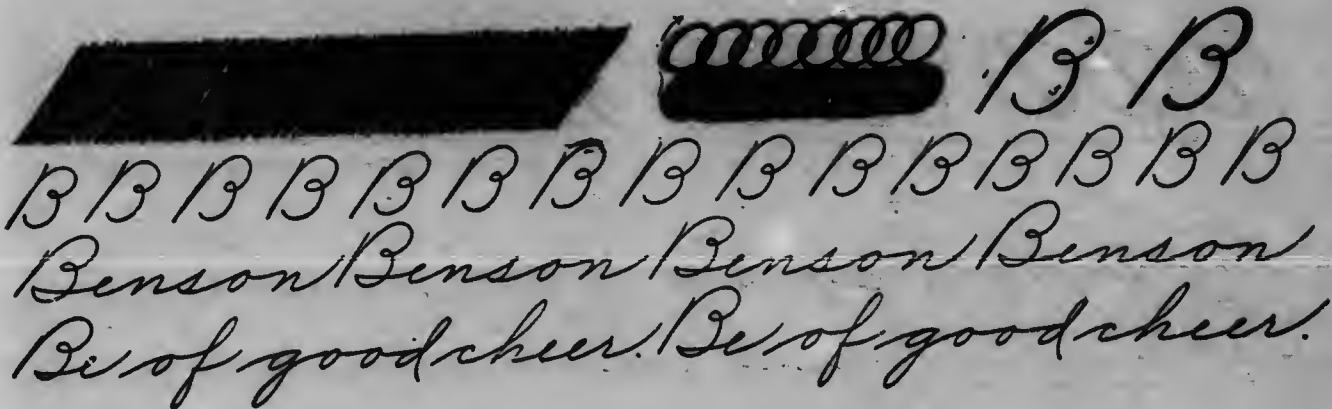 B B
B B B B B B B B B B B B B B B
Benson Benson Benson Benson
Be of good cheer. Be of good cheer.